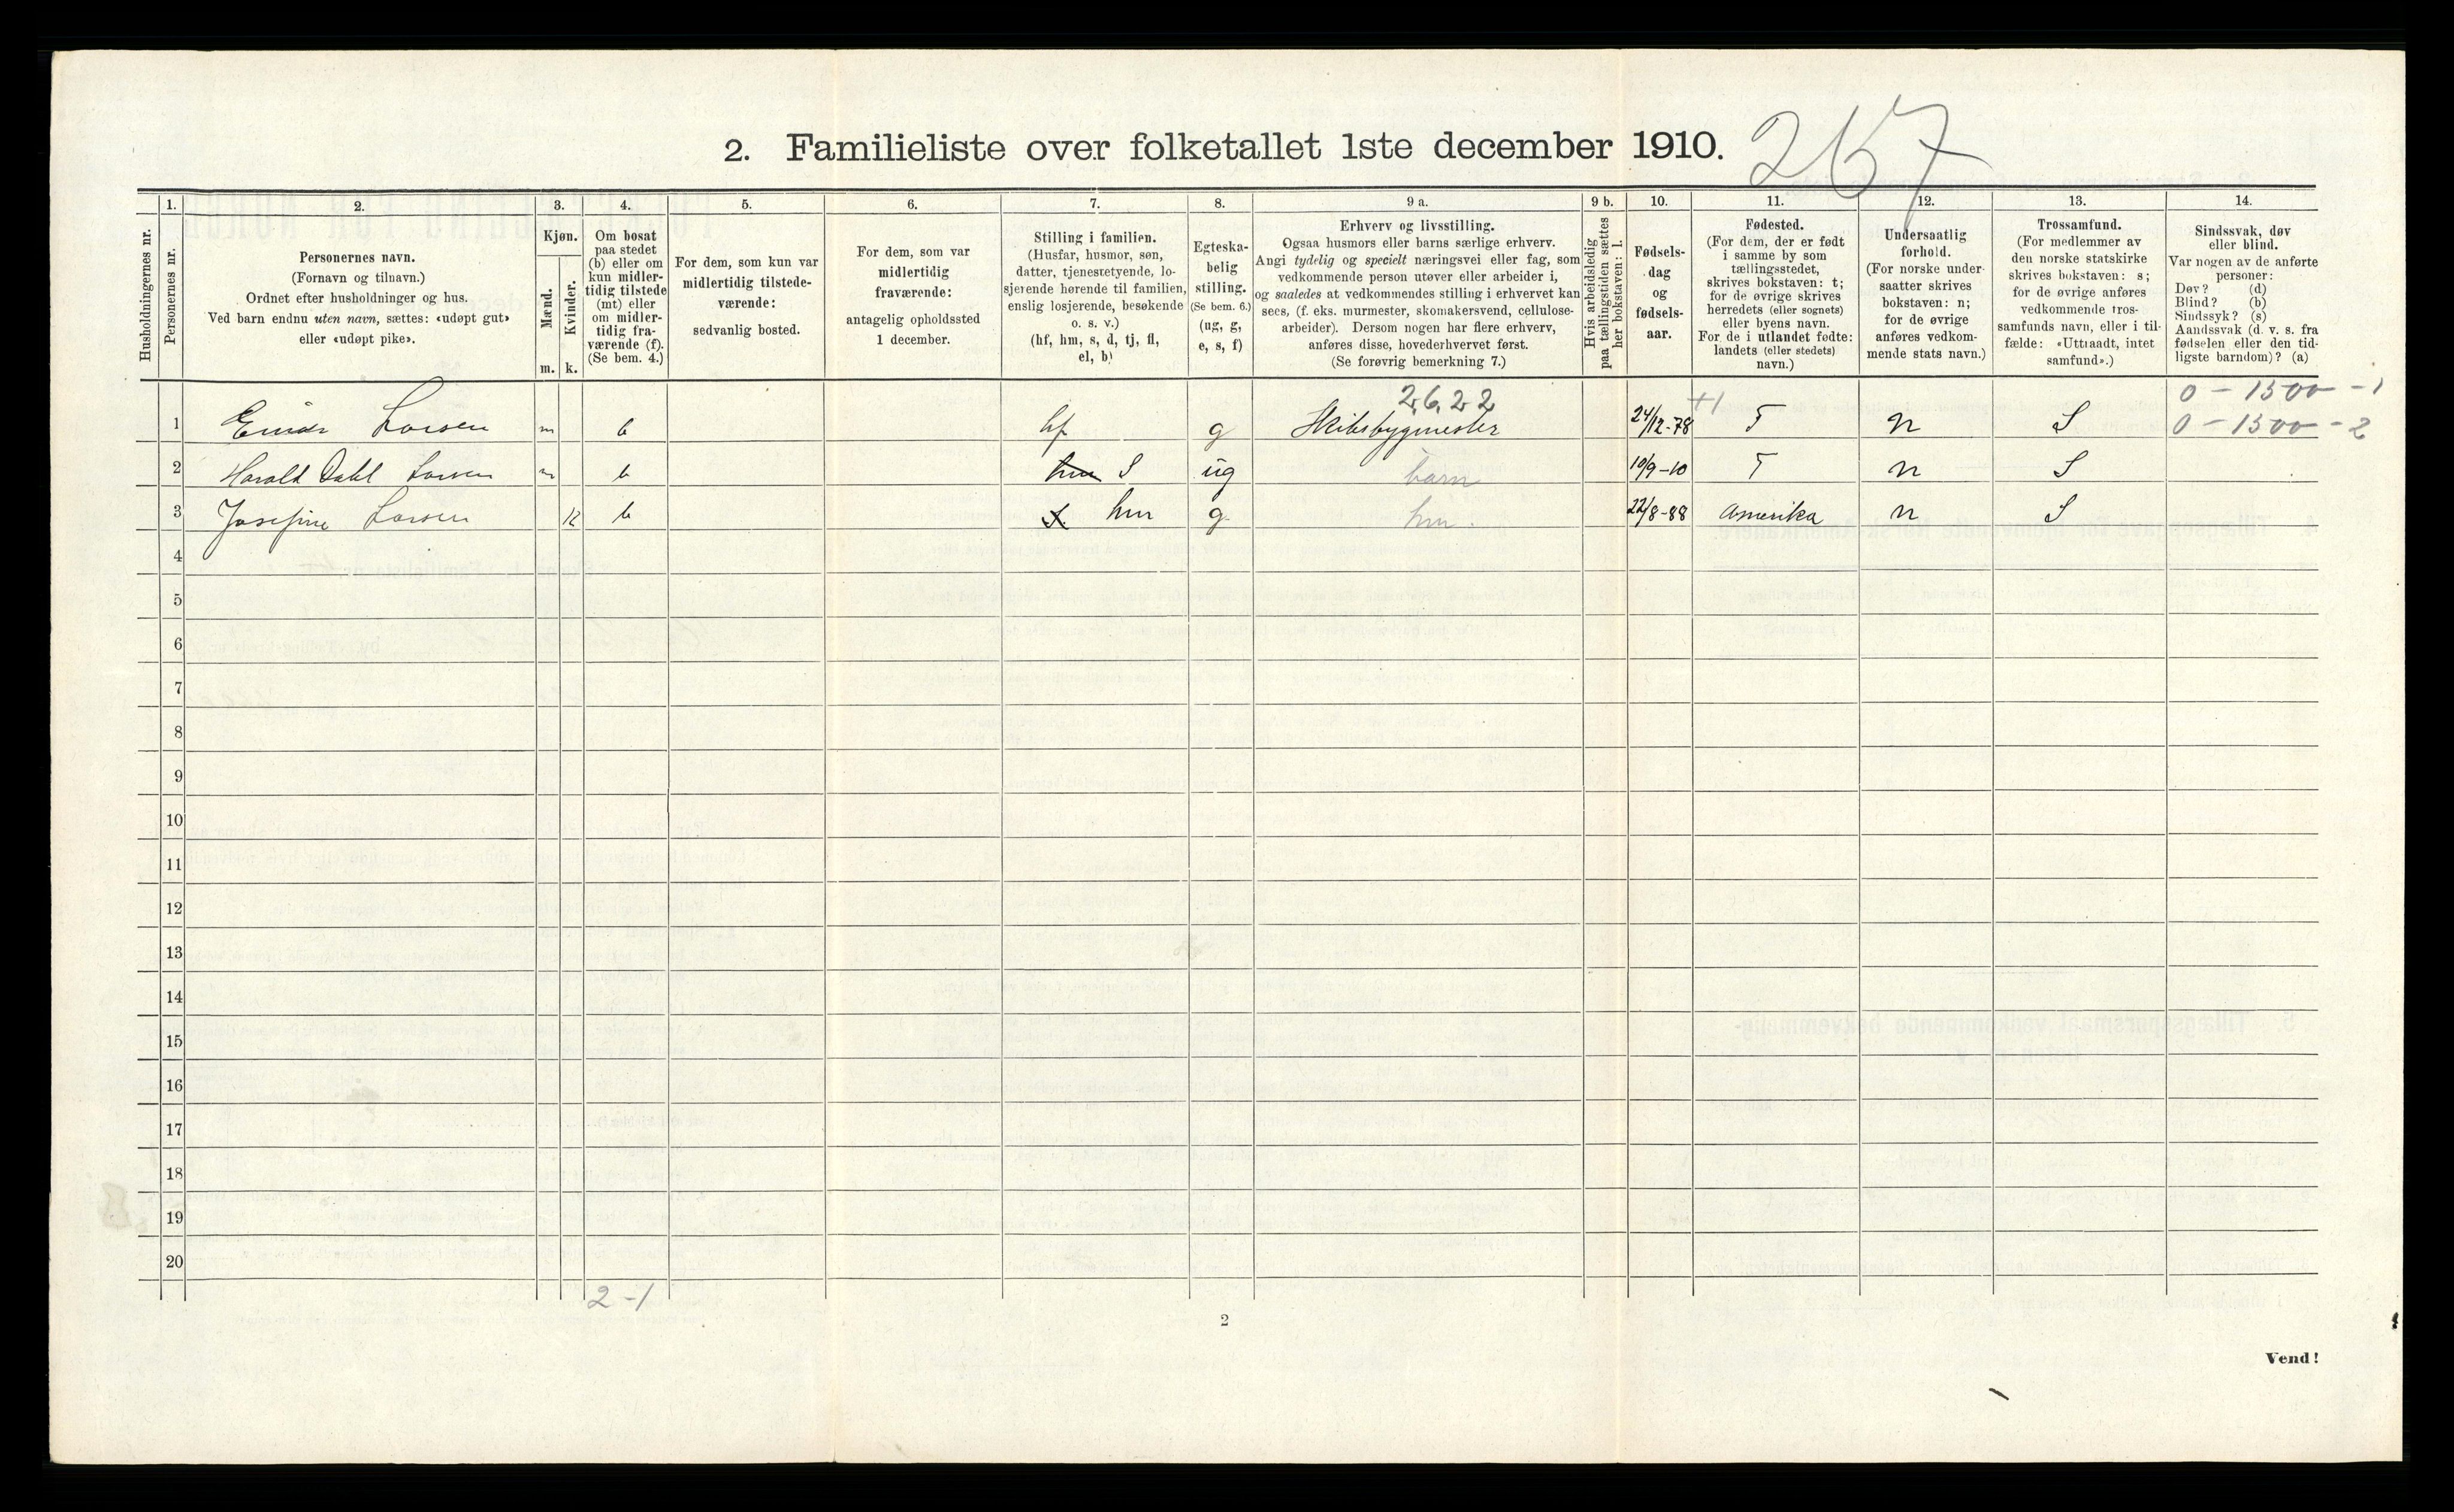 2. Familieliste over folketallet 1ste december 1910.
267
Husholdningernes nr.
1.
Personernes nr.
2.
Personernes navn.
(Fornavn og tilnavn.)
Ordnet efter husholdninger og hus.
Ved barn endnu uten navn, sættes: «udøpt gut»
eller «udøpt pike».
3.
Kjøn.
Mænd.
Kvinder.
m. k.
4.
Om bosat
paa stedet
(b) eller om
kun midler-
tidig tilstede
(mt) eller
om midler-
tidig fra-
værende (f).
(Se bem. 4.)
5.
For dem, som kun var
midlertidig tilstede-
værende:
sedvanlig bosted.
6.
For dem, som var
midlertidig
fraværende:
antagelig opholdssted
1 december.
7.
Stilling i familien.
(Husfar, husmor, søn,
datter, tjenestetyende, lo-
sjerende hørende til familien,
enslig losjerende, besøkende
o. s. v.)
(hf, hm, s, d, tj, fl,
el, b)
8.
Egteska-
belig
stilling.
(Se bem. 6.)
(ug, g,
e, s, f)
9 a.
Erhverv og livsstilling.
Ogsaa husmors eller barns særlige erhverv.
Angi tydelig og specielt næringsvei eller fag, som
vedkommende person utøver eller arbeider i,
og saaledes at vedkommendes stilling i erhvervet kan
sees, (f. eks. murmester, skomakersvend, cellulose-
arbeider). Dersom nogen har flere erhverv,
anføres disse, hovederhvervet først.
(Se forøvrig bemerkning 7.)
9 b.
Hvis arbeidsledig
paa tællingstiden sættes
her bokstaven: l.
10.
Fødsels-
dag
og
fødsels-
aar.
11.
Fødested.
(For dem, der er født
i samme by som
tællingsstedet,
skrives bokstaven: t;
for de øvrige skrives
herredets (eller sognets)
eller byens navn.
For de i utlandet fødte:
landets (eller stedets)
navn.)
12.
Undersaatlig
forhold.
(For norske under-
saatter skrives
bokstaven: n;
for de øvrige
anføres vedkom-
mende stats navn.)
13.
Trossamfund.
(For medlemmer av
den norske statskirke
skrives bokstaven: s;
for de øvrige anføres
vedkommende tros-
samfunds navn, eller i til-
fælde: «Uttraadt, intet
samfund».)
14.
Sindssvak, døv
eller blind.
Var nogen av de anførte
personer:
Døv? (d)
Blind? (b)
Sindssyk? (s)
Aandssvak (d. v. s. fra
fødselen eller den tid-
ligste barndom)? (a)
2,6,2 2 +1 0 - 1500 - 1
1 Einar Larsen m b hf g Skibsbygmester 24/12-78 T n S 0 - 1500 - 2
2 Harald Dahl Larsen m b hm S ug barn 10/9-10 T n S
3 Josefine Larsen k b S. hm g hm. 22/8-88 Amerika n S
4
5
6
7
8
9
10
11
12
13
14
15
16
17
18
19
20
2-1
2
Vend!